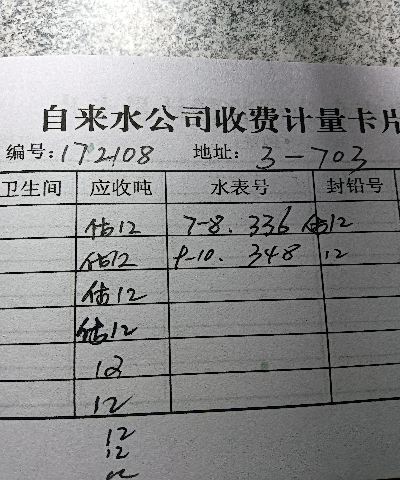 自来水公司收费计量卡片
编号:172108 地址:3-703
卫生间 应收吨 水表号 封铅号
估12 7-8. 336 估12
估12 9-10. 348 12
估12
估12
12
12
12
12